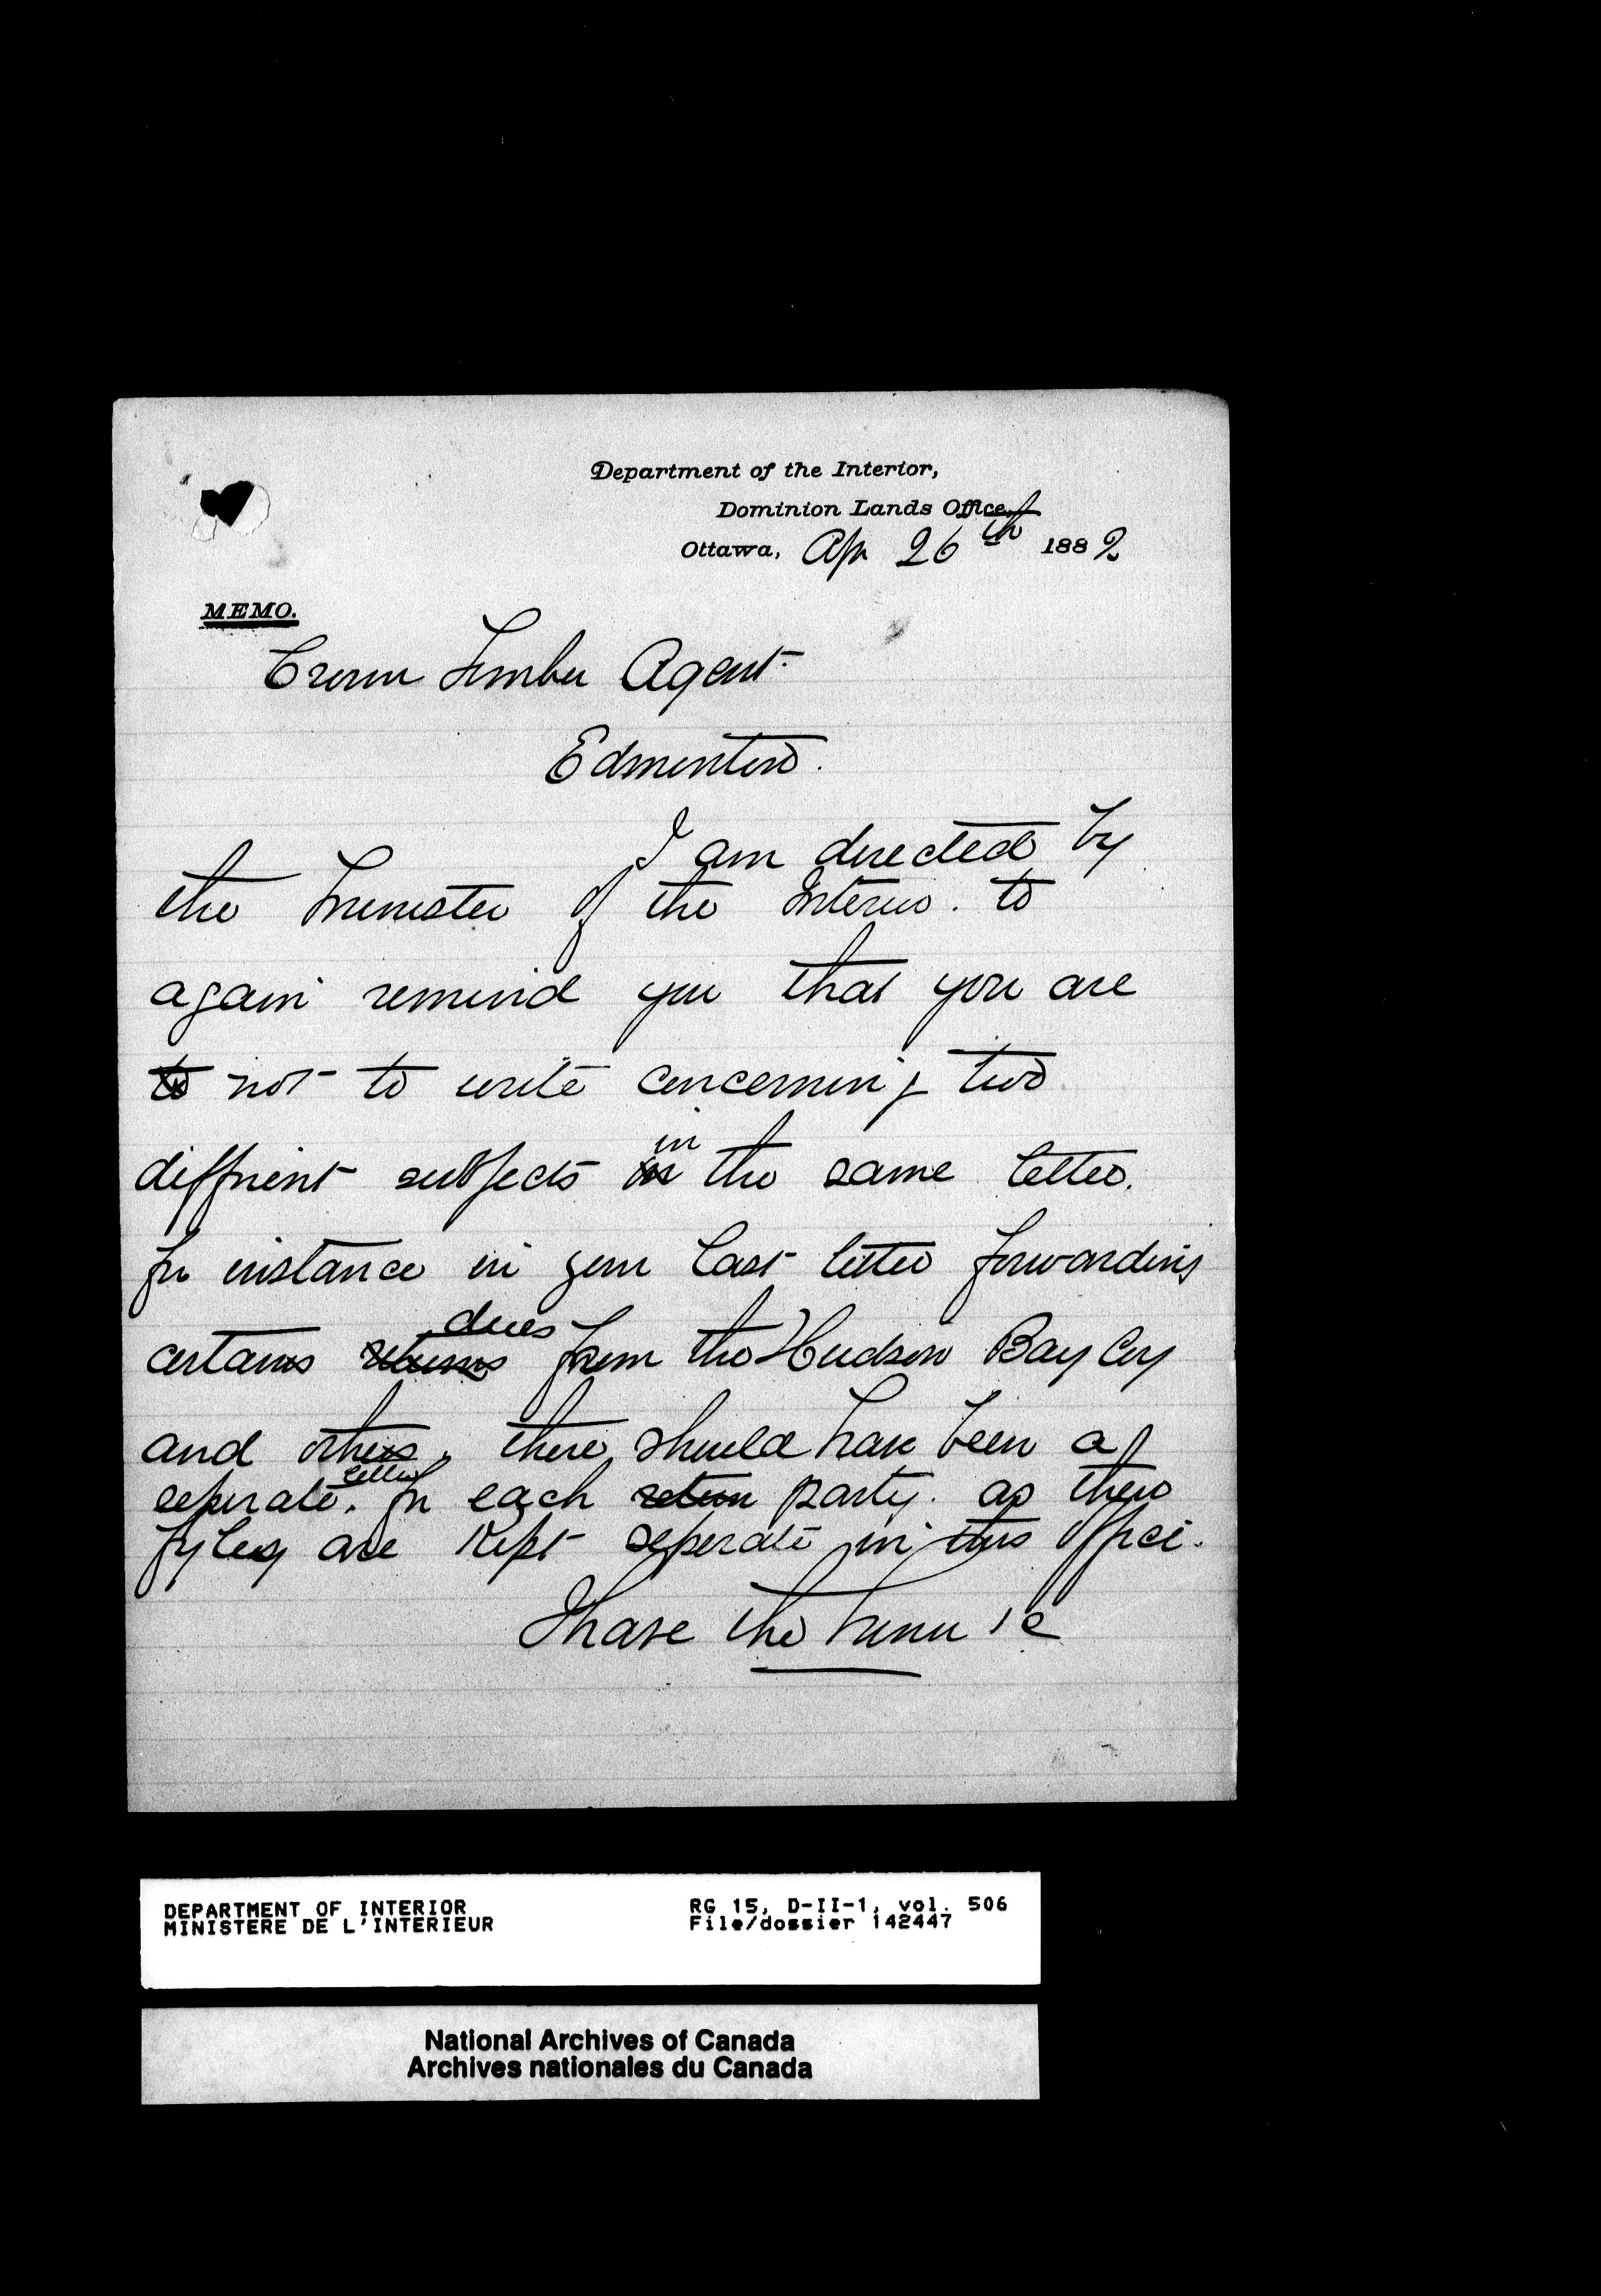 Department of the Interior,
Dominion Lands Office,
Ottawa, Ap 26th 1882
MEMO.
Crown Timber Agent
Edmonton.
I am directed by
the Minister of the Interior. to
again remind you that you are
to not to write concerning two
diffrient subjects in in the same letter.
for instance in your last letter forwarding
dues
certain returns from the Hudson Bay Coy
and others, there should have been a
letter
seperate. for each return party. as their
fyles are kept seperate in this office.
I have the honor &c
DEPARTMENT OF INTERIOR
MINISTERE DE L'INTERIEUR
RG 15, D-II-1, vol. 506
File/dossier 142447
National Archives of Canada
Archives nationales du Canada